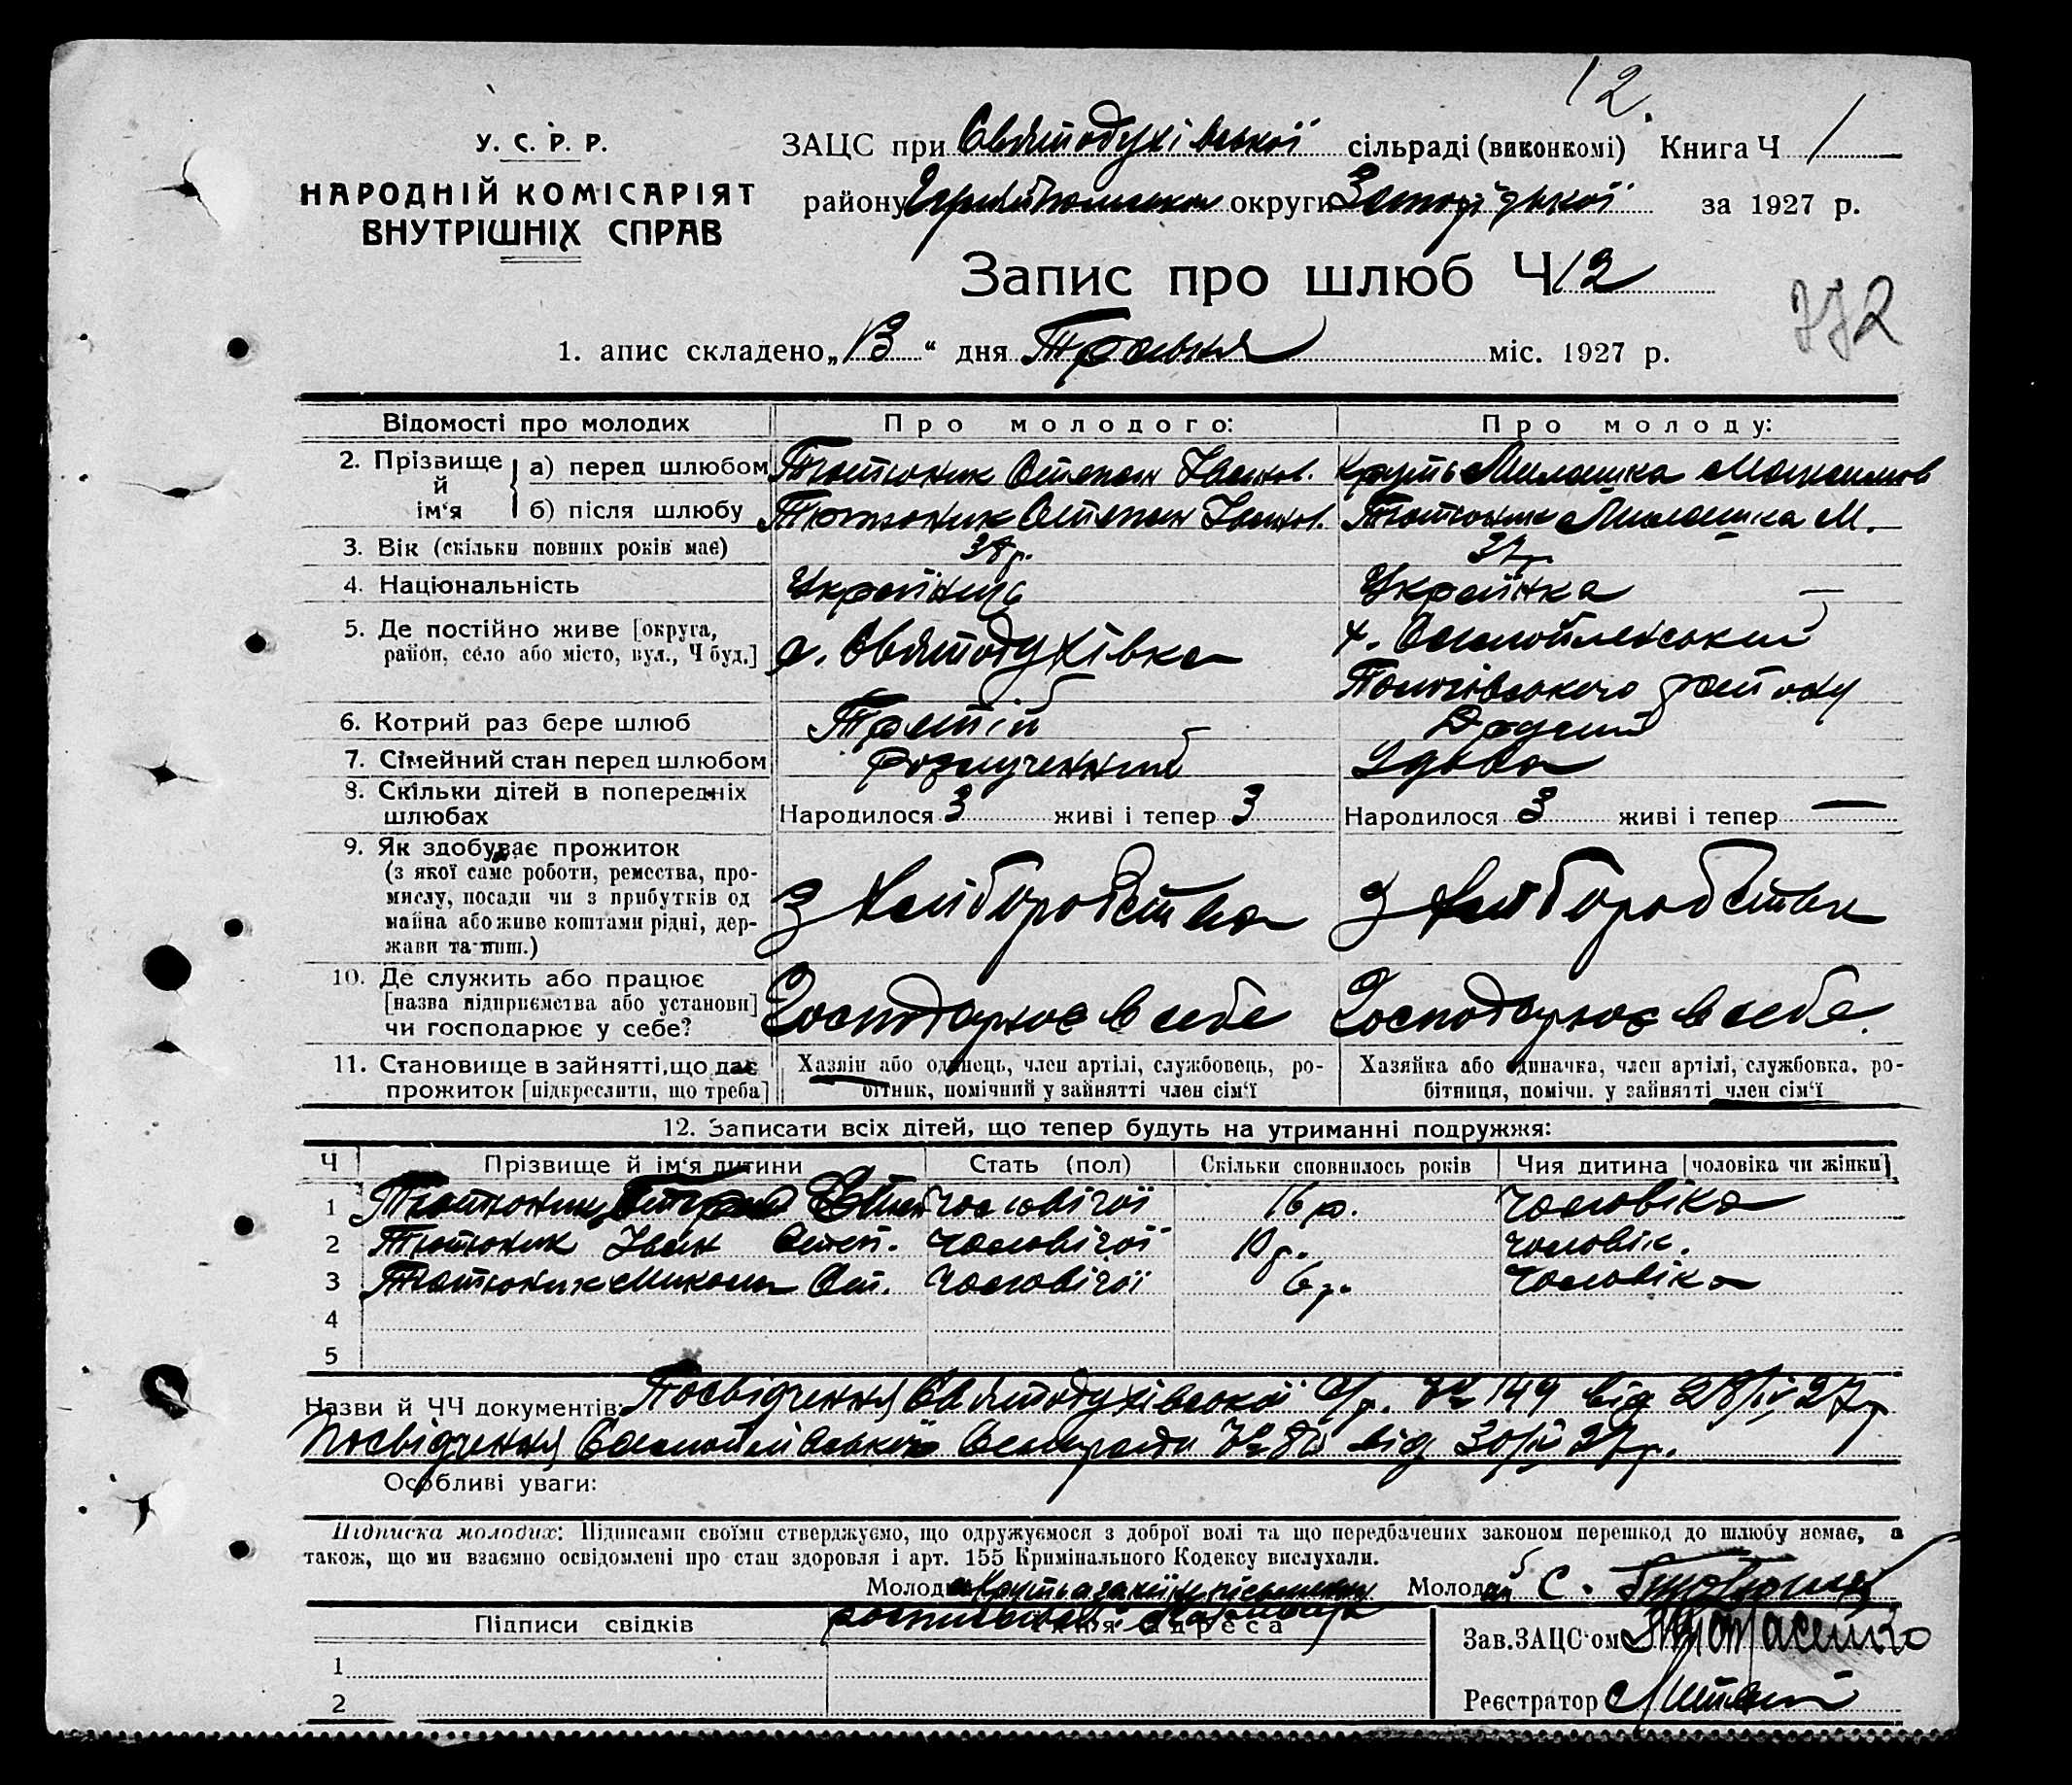 12.
У. С. Р. Р.
НАРОДНІЙ КОМІСАРІЯТ
ВНУТРІШНІХ СПРАВ
ЗАЦС при Святодухівської сільраді (виконкомі) Книга Ч 1
району округи Запорізької за 1927 р.
Запис про шлюб Ч 12
772
1. апис складено „13“ дня Травня міс. 1927 р.
Відомості про молодих Про молодого: Про молоду:
2. Прізвище й ім‘я
а) перед шлюбом Тютюник Степан Іванов. Круть Милашка Максимов
б) після шлюбу Тютюник Степан Іванов. Тютюник Милашка М.
3. Вік (скільки повних років має) 38 р. 37 р.
4. Національність Українць Українка —
5. Де постійно живе [округа, район, село або місто, вул., Ч буд.] с. Святодухівка х. Самойлівський
району
6. Котрий раз бере шлюб Третій Другий
7. Сімейний стан перед шлюбом розлученний Удова
8. Скільки дітей в попередніх шлюбах Народилося 3 живі і тепер 3 Народилося 3 живі і тепер —
9. Як здобуває прожиток
(з якої саме роботи, ремества, про-
мислу, посади чи з прибутків од
майна або живе коштами рідні, дер-
жави та инш.) З Хліборобства З Хліборобства
10. Де служить або працює
[назва підприємства або установи]
чи господарює у себе? Господарює в себе Господарює в себе.
11. Становище в зайнятті, що дає
прожиток [підкреслити, що треба]
Хазяїн або одинець, член артілі, службовець, ро-
бітник, помічний у зайнятті член сім‘ї
Хазяйка або одиначка, член артілі, службовка, ро-
бітниця, помічн. у зайнятті член сім‘ї
12. Записати всіх дітей, що тепер будуть на утриманні подружжя:
Ч Прізвище й ім‘я дитини Стать (пол) Скільки сповнилось років Чия дитина [чоловіка чи жінки]
1 Тютюник чоловічої 16 р. чоловіка
2 Тютюник Іван Степ. чоловічої 10 р. чоловік.
3 Тютюник Микола Ст. чоловічої 6 р. чоловіка
4
5
Назви й ЧЧ документів: Посвідчення Святодухівської с/р. № 149 від 28/IV 27 р
Посвідчення Сельради № від 30/IV 27 р.
Особливі уваги:
Підписка молодих: Підписами своїми стверджуємо, що одружуємося з доброї волі та що передбачених законом перешкод до шлюбу немає, а
також, що ми взаємно освідомлені про стан здоровля і арт. 155 Кримінального Кодексу вислухали.
Молода Круть а за неїну письменну Молодий С. Тютюник
росписався
Підписи свідків адреса Зав. ЗАЦС‘ом
1
2 Реєстратор